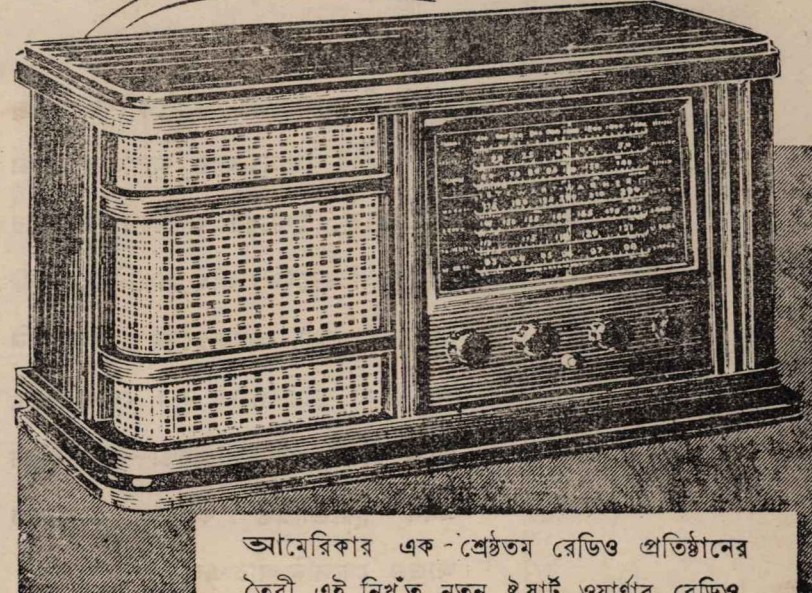 আমেরিকার এক - শ্রেষ্ঠতম রেডিও প্রতিষ্ঠানের
তৈরী এই নিখুঁত নূতন ষ্টুয়ার্ট ওয়ার্ণার রেডিও